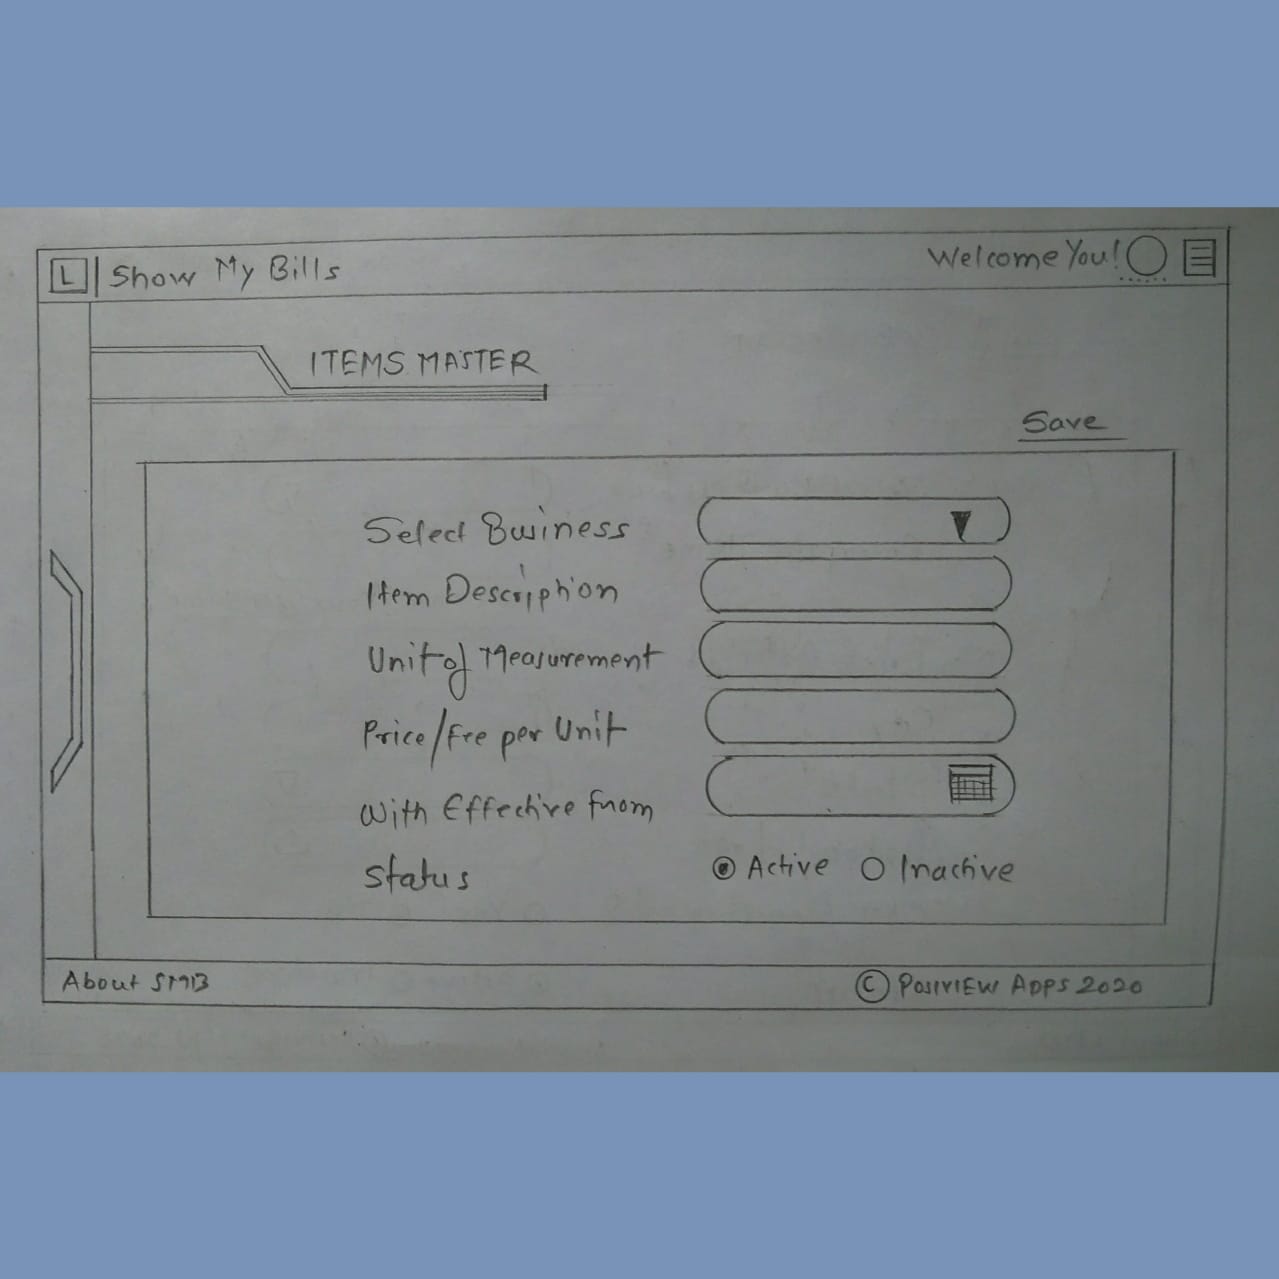 L Show My Bills
Welcome You!
ITEMS MASTER
Save
Select Business
Item Description
Unit of Measurement
Price/Fee per Unit
With Effective from
Status
Active Inactive
About SMB
© POSIVIEW APPS 2020